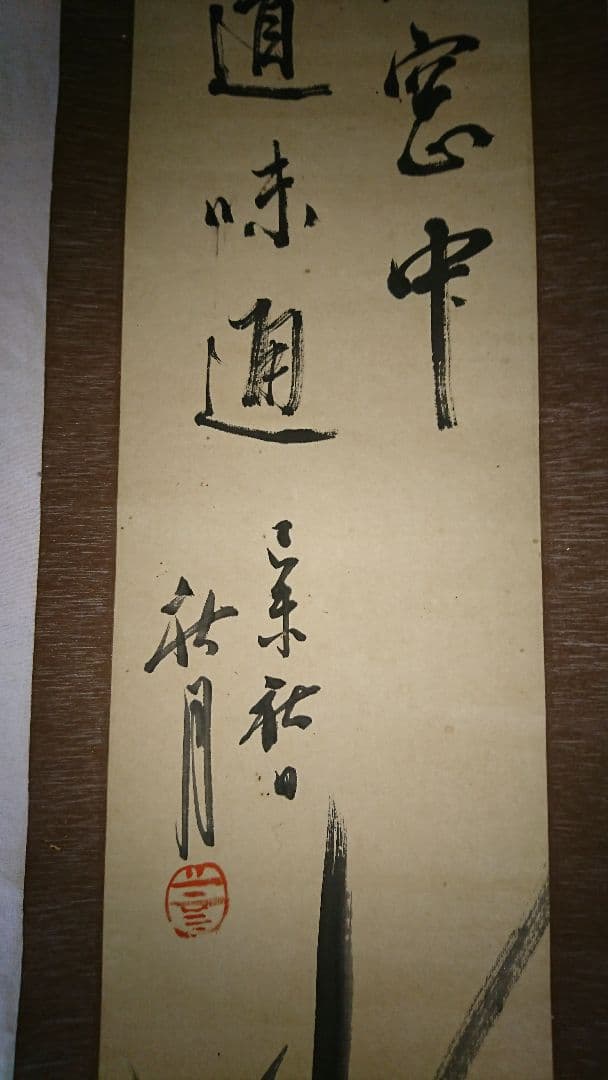 窓中
道味通
己未秋日
秋月